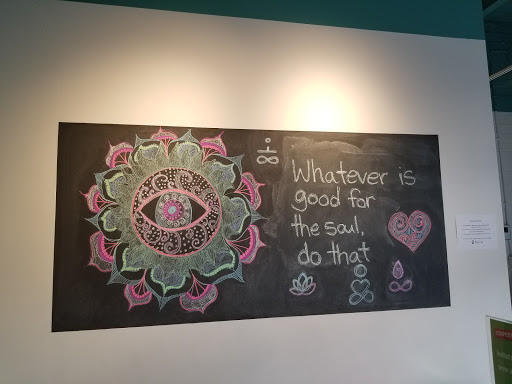 Whatever is
good for
the soul,
do that